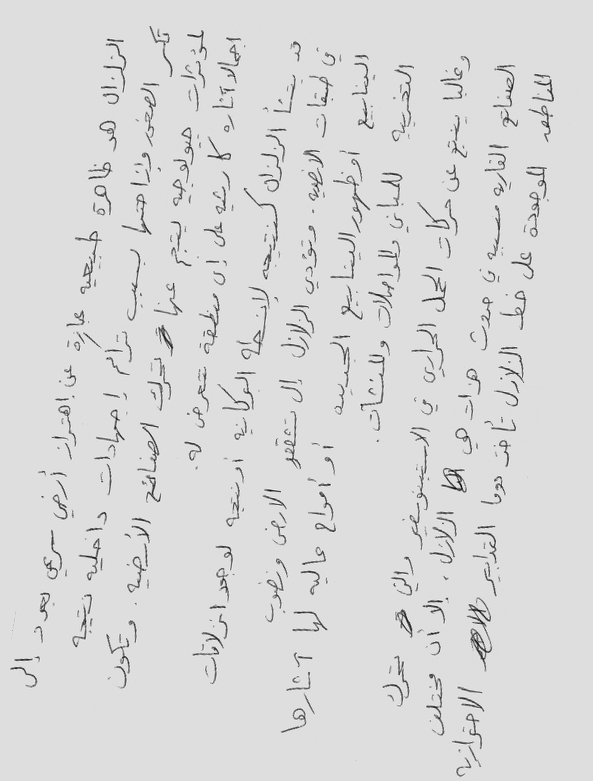 الزلزال هو ظاهرة طبيعية عبارة عن إهتزاز أرضي سريع يعود إلى
تكسر الصخور وإزاحتها بسبب تراكم إجهادات داخلية نتيجة
لمؤثرات جيولوجية ينجم عنها تحرك الصفائح الأرضية. وتكون
اجمالا آثاره كارثية على إي منطقة تتعرض له.
قد ينشأ الزلزال كنتيجه لإنشطة البركانية أو نتيجة لوجود انزلاقات
في طبقات الارضية. وتؤدي الزلازل إلى تشقق الارض ونضوب
الينابيع أو ظهور الينابيع الجديده أو أمواج عالية لها آثارها
التخريبية للمباني والمواصلات والمنشآت.
وغالبا ينتج عن حركات الحمل الحراري في الاستينوسفير والتي تحرك
الصفائح القاريه مسببه في حدوث هزات هي الزلازل، إلا أن مختلف
المناطق الموجودة على خط الزلازل تأخذ دوما التدابير الاحترازية